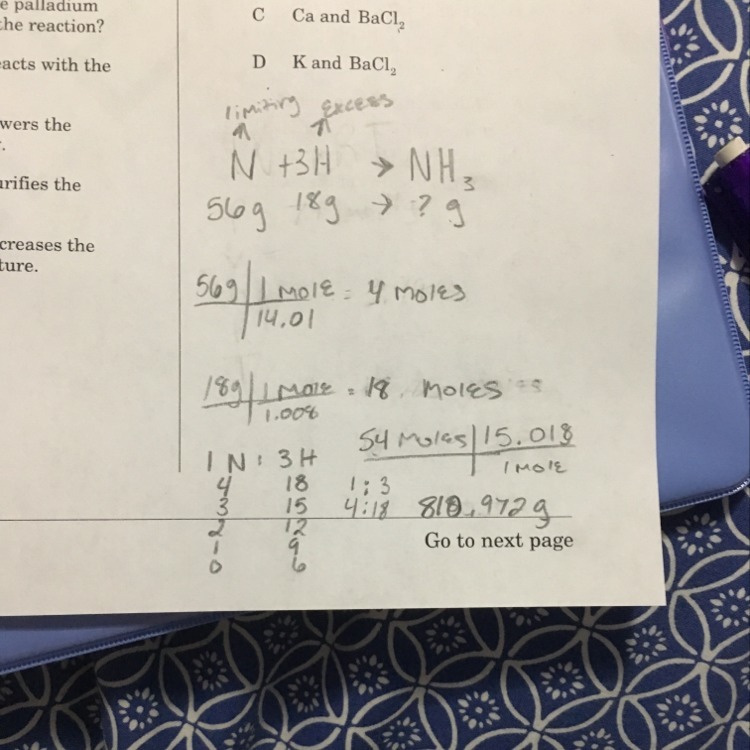 e palladium
the reaction?
eacts with the
wers the
r.
arifies the
creases the
ture.
C Ca and BaCl₂
D K and BaCl₂
limiting excess
N +3H → NH₃
56g 18g → ? g
56g | 1 mole = 4 moles
14.01
18g | 1 mole = 18 moles
1.008
54 moles | 15.018
1 mole
1 N : 3H
4 18 1 : 3
3 15 4:18 810.972g
2 12
1 9
0 6
Go to next page